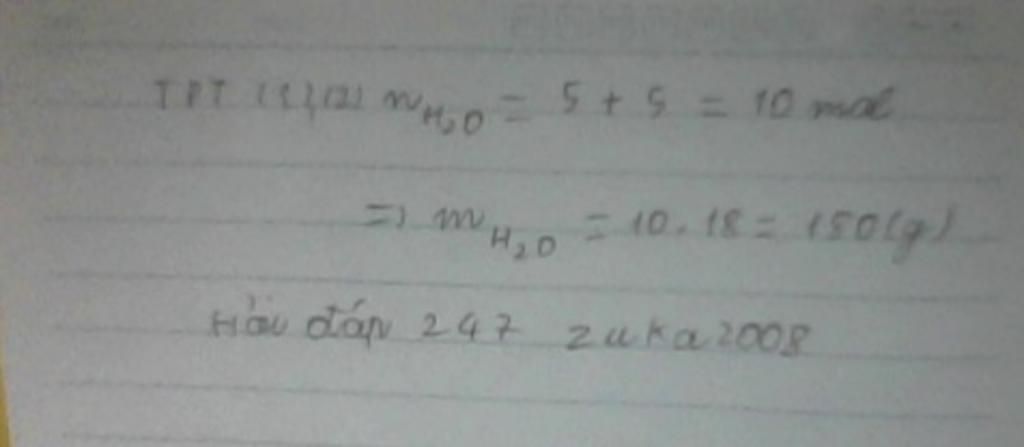 TPT (1)(2) n H₂O = 5 + 5 = 10 mol
=> m H₂O = 10.18 = 180(g)
Hỏi đáp 247 zuka2008